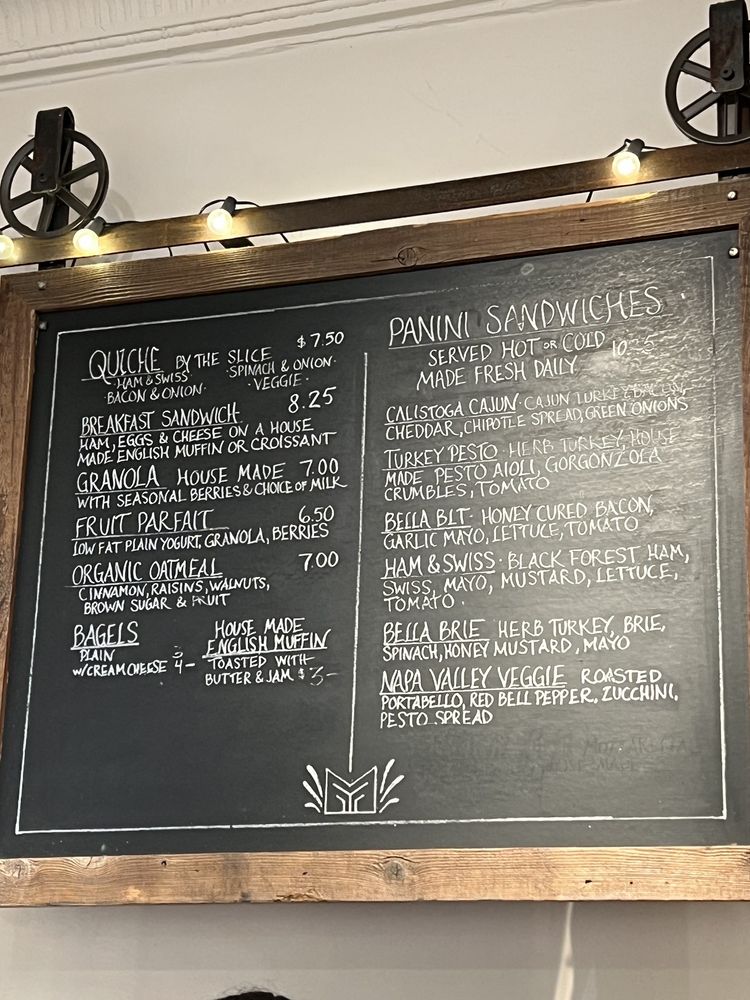 QUICHE BY THE SLICE $7.50
·HAM & SWISS· ·SPINACH & ONION·
BACON & ONION· ·VEGGIE·
BREAKFAST SANDWICH 8.25
HAM, EGGS & CHEESE ON A HOUSE
MADE ENGLISH MUFFIN OR CROISSANT
GRANOLA HOUSE MADE 7.00
WITH SEASONAL BERRIES & CHOICE OF MILK
FRUIT PARFAIT 6.50
LOW FAT PLAIN YOGURT, GRANOLA, BERRIES
ORGANIC OATMEAL 7.00
CINNAMON, RAISINS, WALNUTS,
BROWN SUGAR & FRUIT
BAGELS
PLAIN 3
W/CREAM CHEESE 4-
HOUSE MADE
ENGLISH MUFFIN
TOASTED WITH
BUTTER & JAM $3-
PANINI SANDWICHES
SERVED HOT OR COLD
MADE FRESH DAILY
CALISTOGA CAJUN· CAJUN TURKEY BACON,
CHEDDAR, CHIPOTLE SPREAD, GREEN ONIONS
TURKEY PESTO· HERB TURKEY, HOUSE
MADE PESTO AIOLI, GORGONZOLA
CRUMBLES, TOMATO
BELLA BLT· HONEY CURED BACON,
GARLIC MAYO, LETTUCE, TOMATO
HAM & SWISS· BLACK FOREST HAM,
SWISS, MAYO, MUSTARD, LETTUCE,
TOMATO·
BELLA BRIE HERB TURKEY, BRIE,
SPINACH, HONEY MUSTARD, MAYO
NAPA VALLEY VEGGIE ROASTED
PORTABELLO, RED BELL PEPPER, ZUCCHINI,
PESTO SPREAD